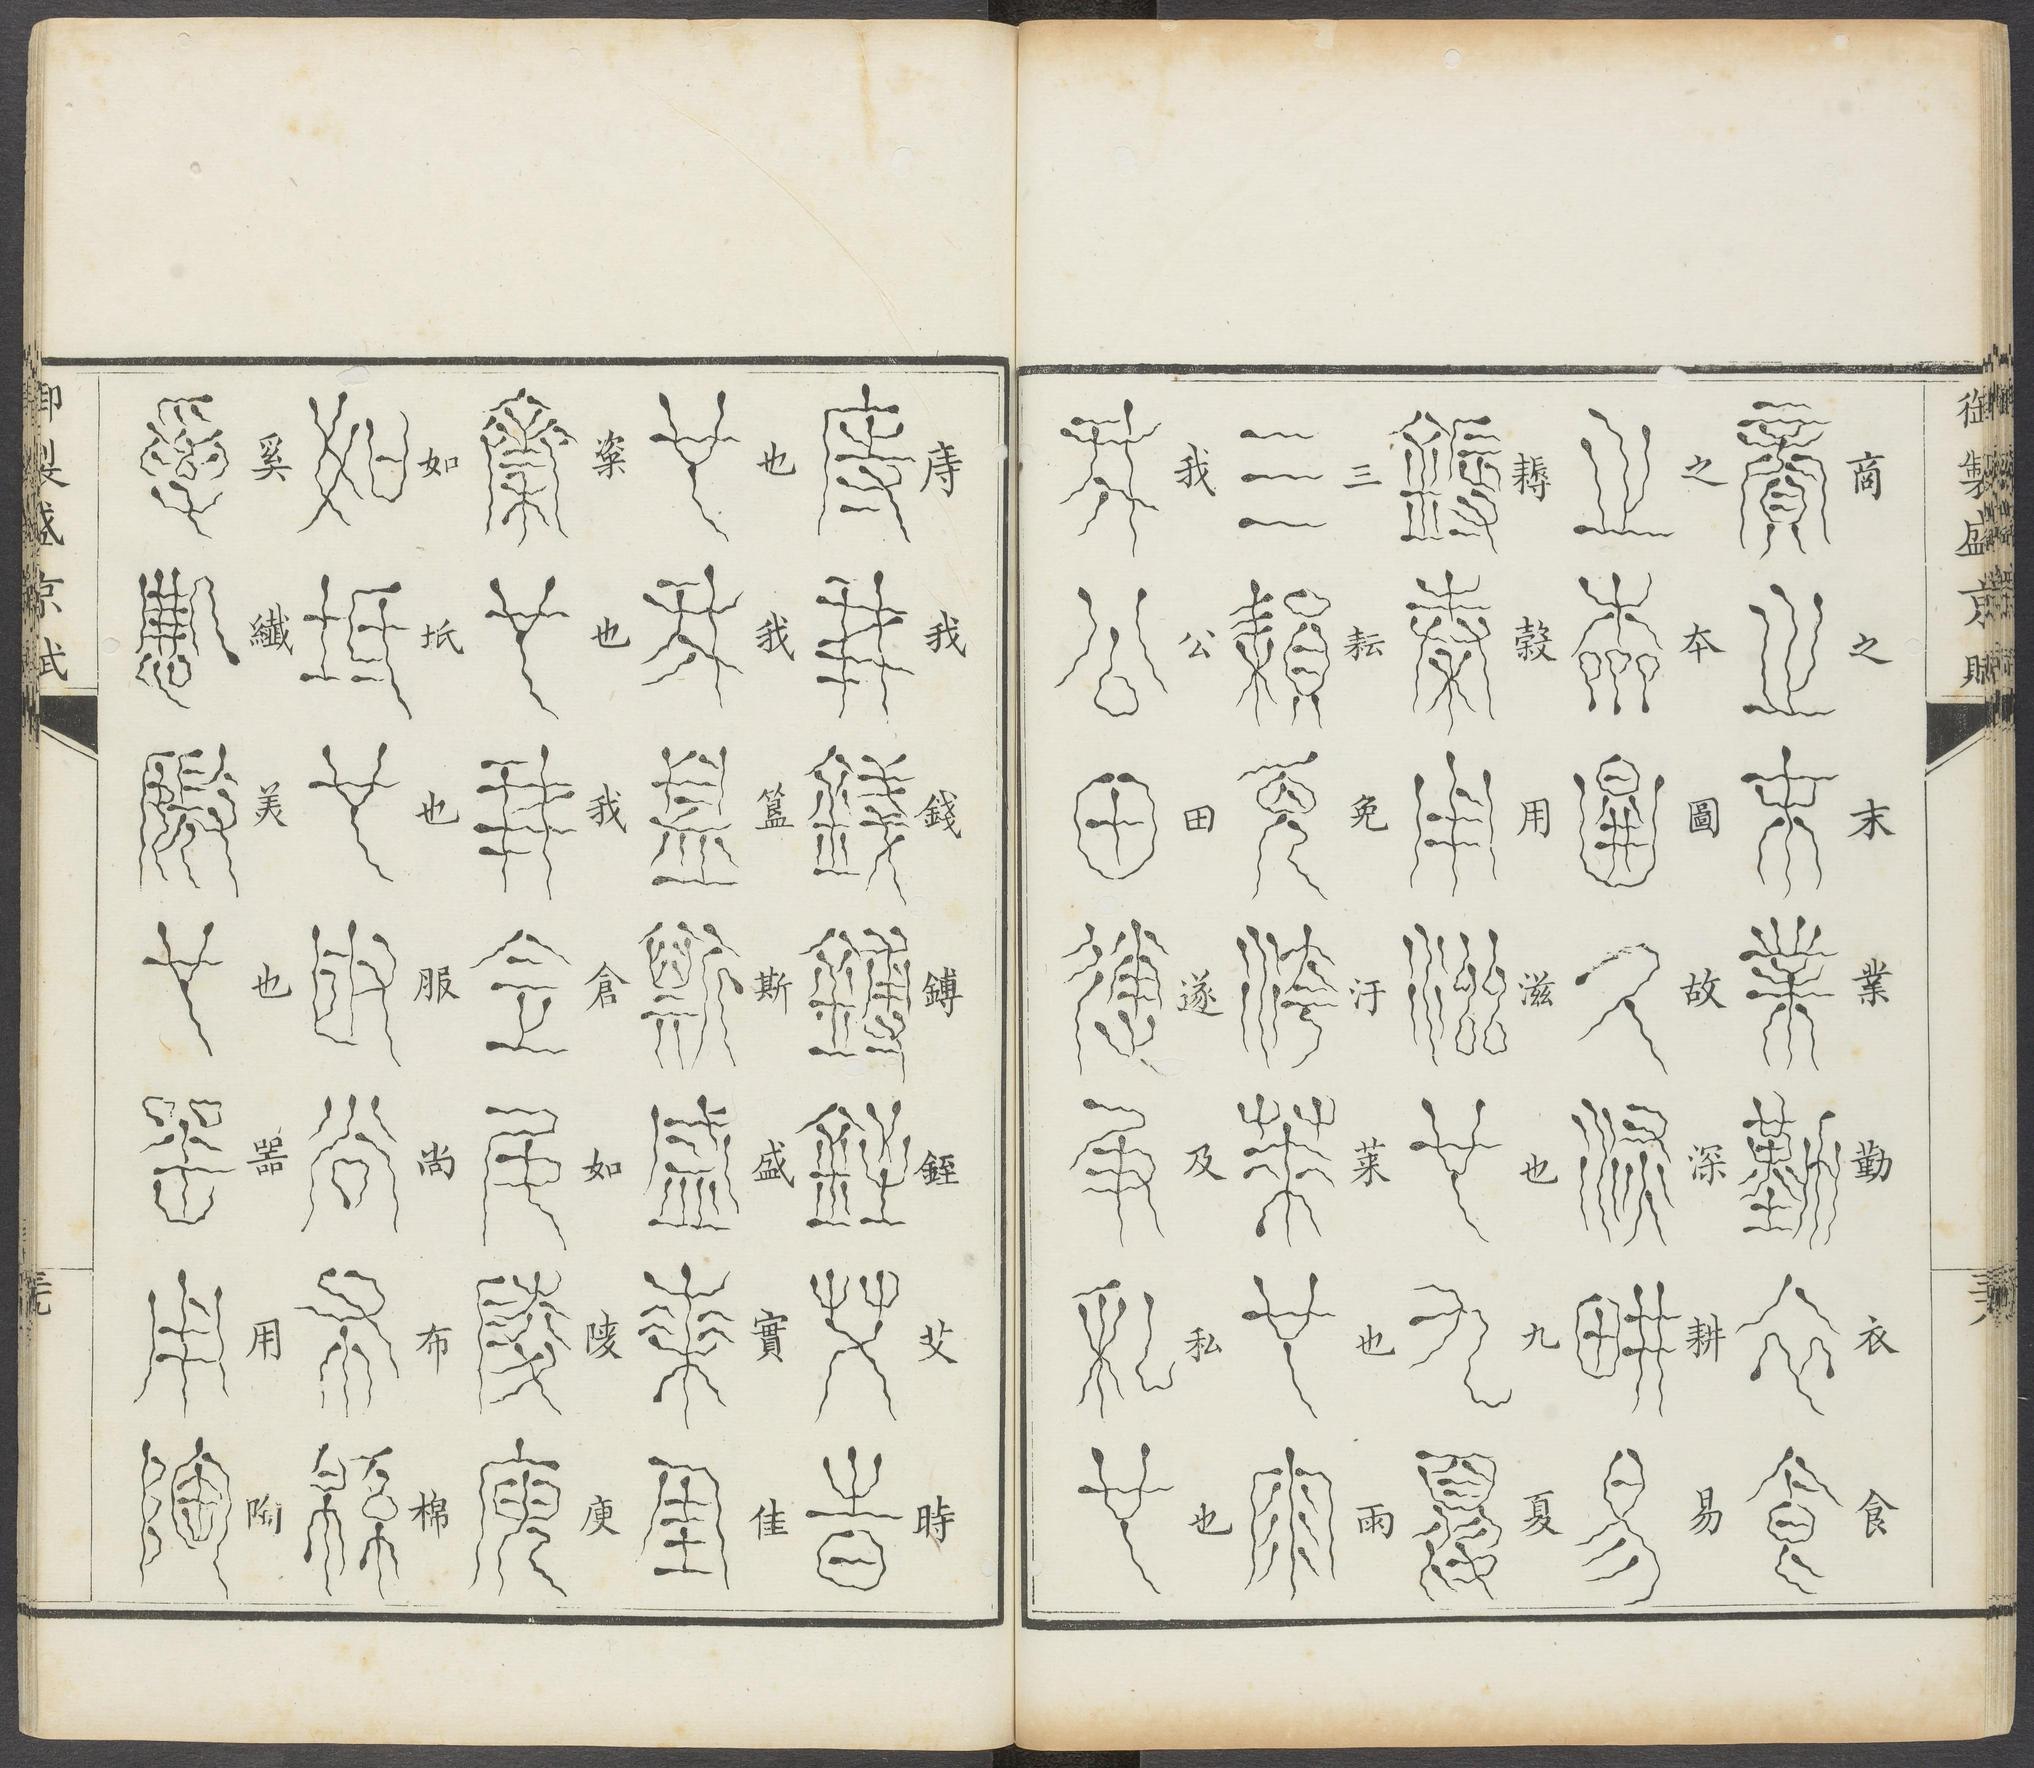 商之末業勤衣食
之本圖故深耕易
耨穀用滋也九夏
三耘免汙萊也雨
我公田遂及私也
庤我錢鎛銍艾時
也我簋斯盛實佳
粢也我倉如陵庾
如坻也服尚布棉
奚纖美也噐用陶
御製盛京賦
御製盛京賦